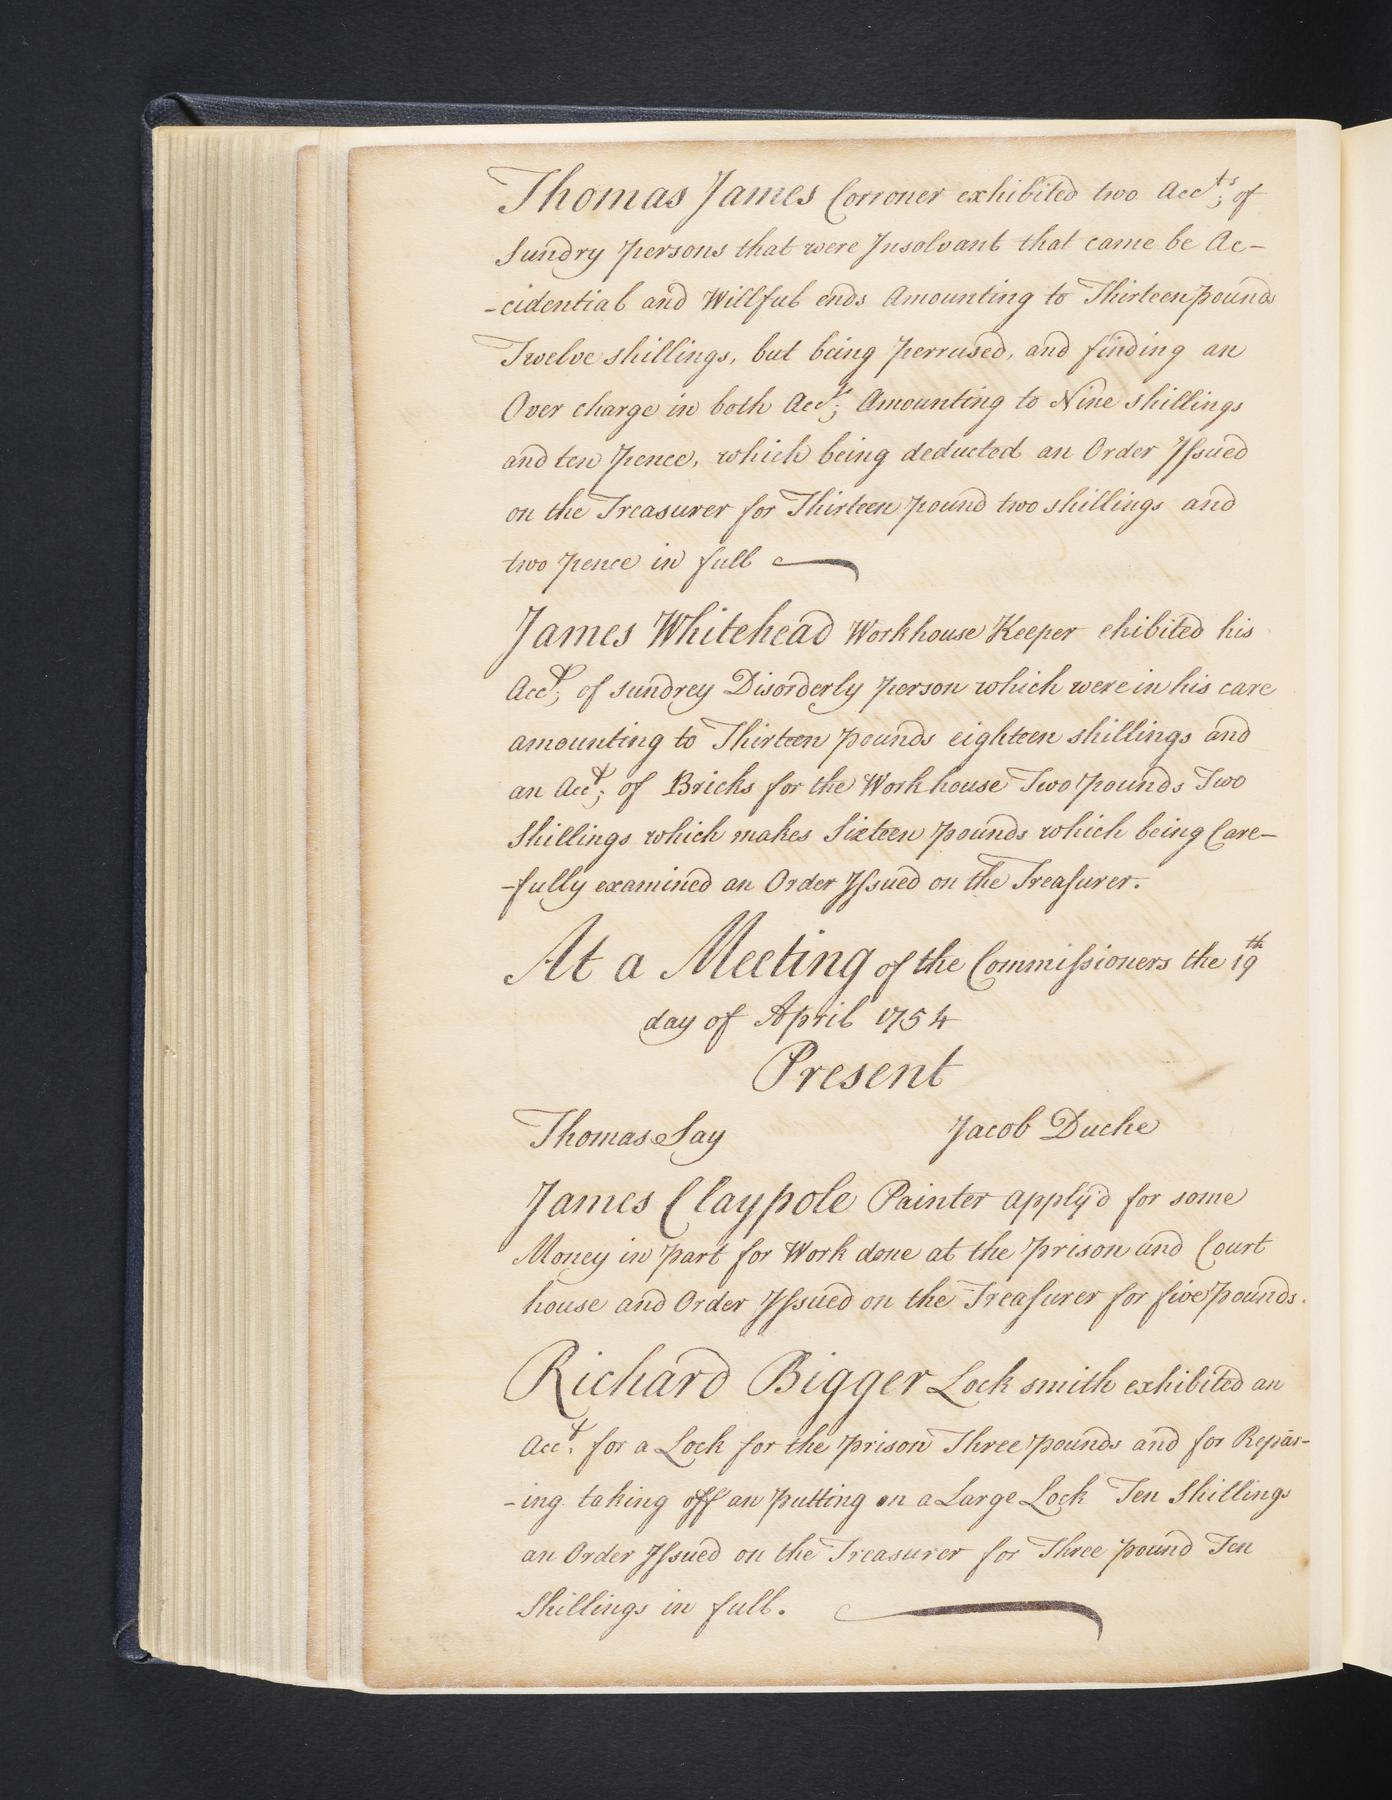 Thomas James Corroner exhibited two Acc.ts; of
Sundry persons that were Insolvant that came be Ac-
-cidential and Willful ends Amounting to Thirteen pounds
Twelve shillings, but being perrused, and finding an
Over charge in both Acc.ts; Amounting to Nine shillings
and ten pence, which being deducted an Order Issued
on the Treasurer for Thirteen pound two shillings and
two pence in full
James Whitehead Workhouse Keeper ehibited his
Acc.t; of sundrey Disorderly person which were in his care
amounting to Thirteen pounds eighteen shillings and
an Acc.t; of Bricks for the Workhouse Two pounds Two
Shillings which makes Sixteen pounds which being Care-
-fully examined an Order Issued on the Treasurer.
At a Meeting of the Commissioners the 19th
day of April 1754
Present
Thomas Say Jacob Duche
James Claypole Painter apply'd for some
Money in part for Work done at the prison and Court
house and Order Issued on the Treasurer for five pounds.
Richard Bigger Lock smith exhibited an
Acc.t for a Lock for the prison Three pounds and for Repair-
-ing taking off an putting on a Large Lock Ten Shillings
an Order Issued on the Treasurer for Three pound Ten
Shillings in full.